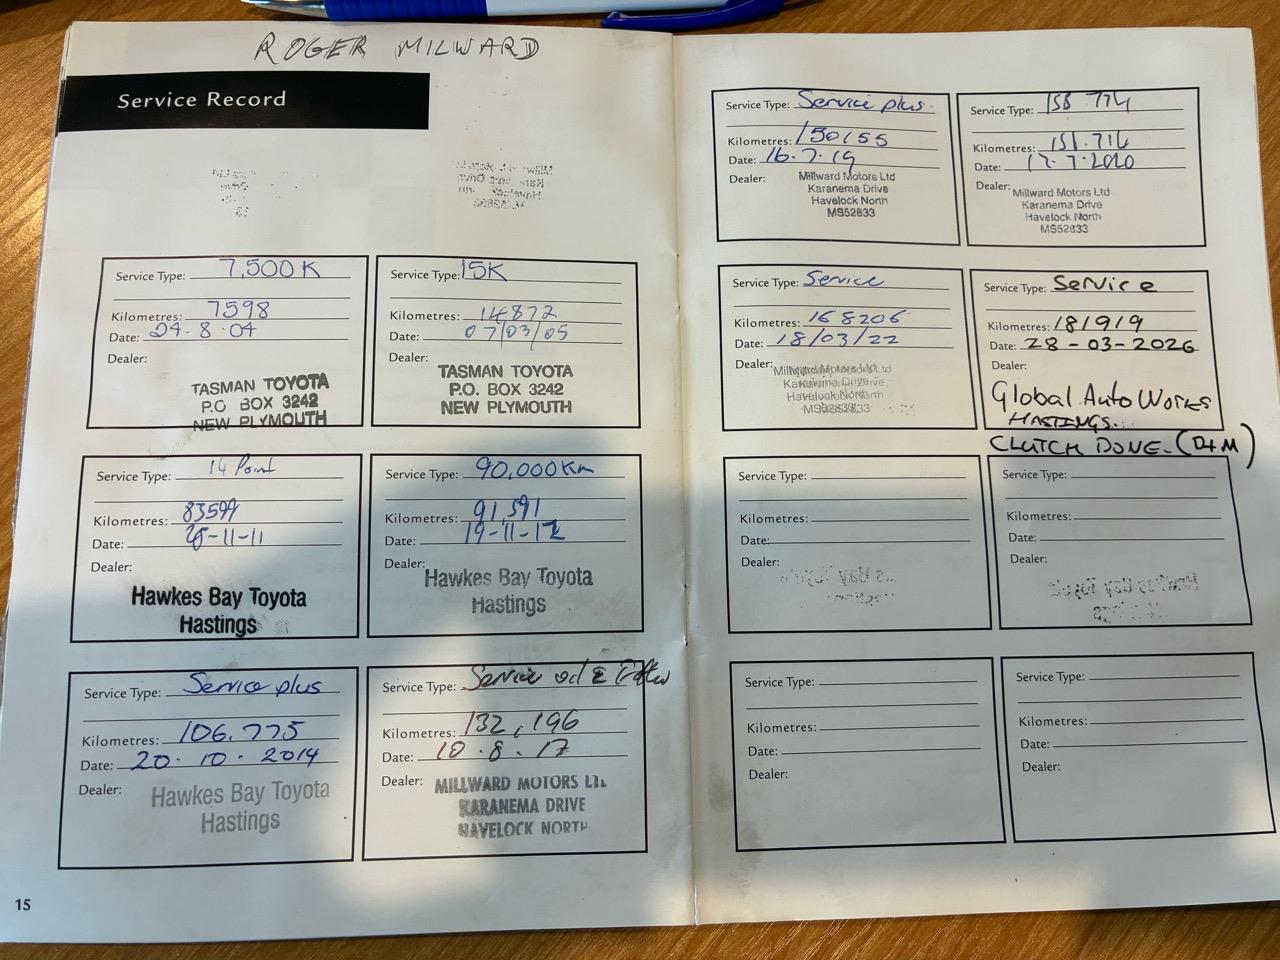 ROGER MILWARD
Service Record
Service Type: 7,500K
Kilometres: 7598
Date: 24.8.04
Dealer:
TASMAN TOYOTA
P.O BOX 3242
NEW PLYMOUTH
Service Type: 15K
Kilometres: 14872
Date: 07/03/05
Dealer:
TASMAN TOYOTA
P.O. BOX 3242
NEW PLYMOUTH
Service Type: 14 Point
Kilometres: 83599
Date: -11-11
Dealer:
Hawkes Bay Toyota
Hastings
Service Type: 90,000Km
Kilometres: 91,591
Date: 19-11-12
Dealer:
Hawkes Bay Toyota
Hastings
Service Type: Service plus
Kilometres: 106.775
Date: 20.10.2014
Dealer:
Hawkes Bay Toyota
Hastings
Service Type: Service oil & Filter
Kilometres: 132,196
Date: 10.8.17
Dealer:
MILLWARD MOTORS LTD
KARANEMA DRIVE
HAVELOCK NORTH
15
Service Type: Service plus.
Kilometres: 150155
Date: 16.7.19
Dealer:
Millward Motors Ltd
Karanema Drive
Havelock North
MS52833
Service Type:
Kilometres:
Date: 17.7.2020
Dealer:
Millward Motors Ltd
Karanema Drive
Havelock North
MS52833
Service Type: Service
Kilometres: 168206
Date: 18/03/22
Dealer:
Millward Motors Ltd
Karanema Drive
Havelock North
Service Type: Service
Kilometres: 181919
Date: 28-03-2026
Dealer:
Global Auto Works
HASTINGS.
CLUTCH DONE. (D+M)
Service Type:
Kilometres:
Date:
Dealer:
Service Type:
Kilometres:
Date:
Dealer:
Service Type:
Kilometres:
Date:
Dealer:
Service Type:
Kilometres:
Date:
Dealer: